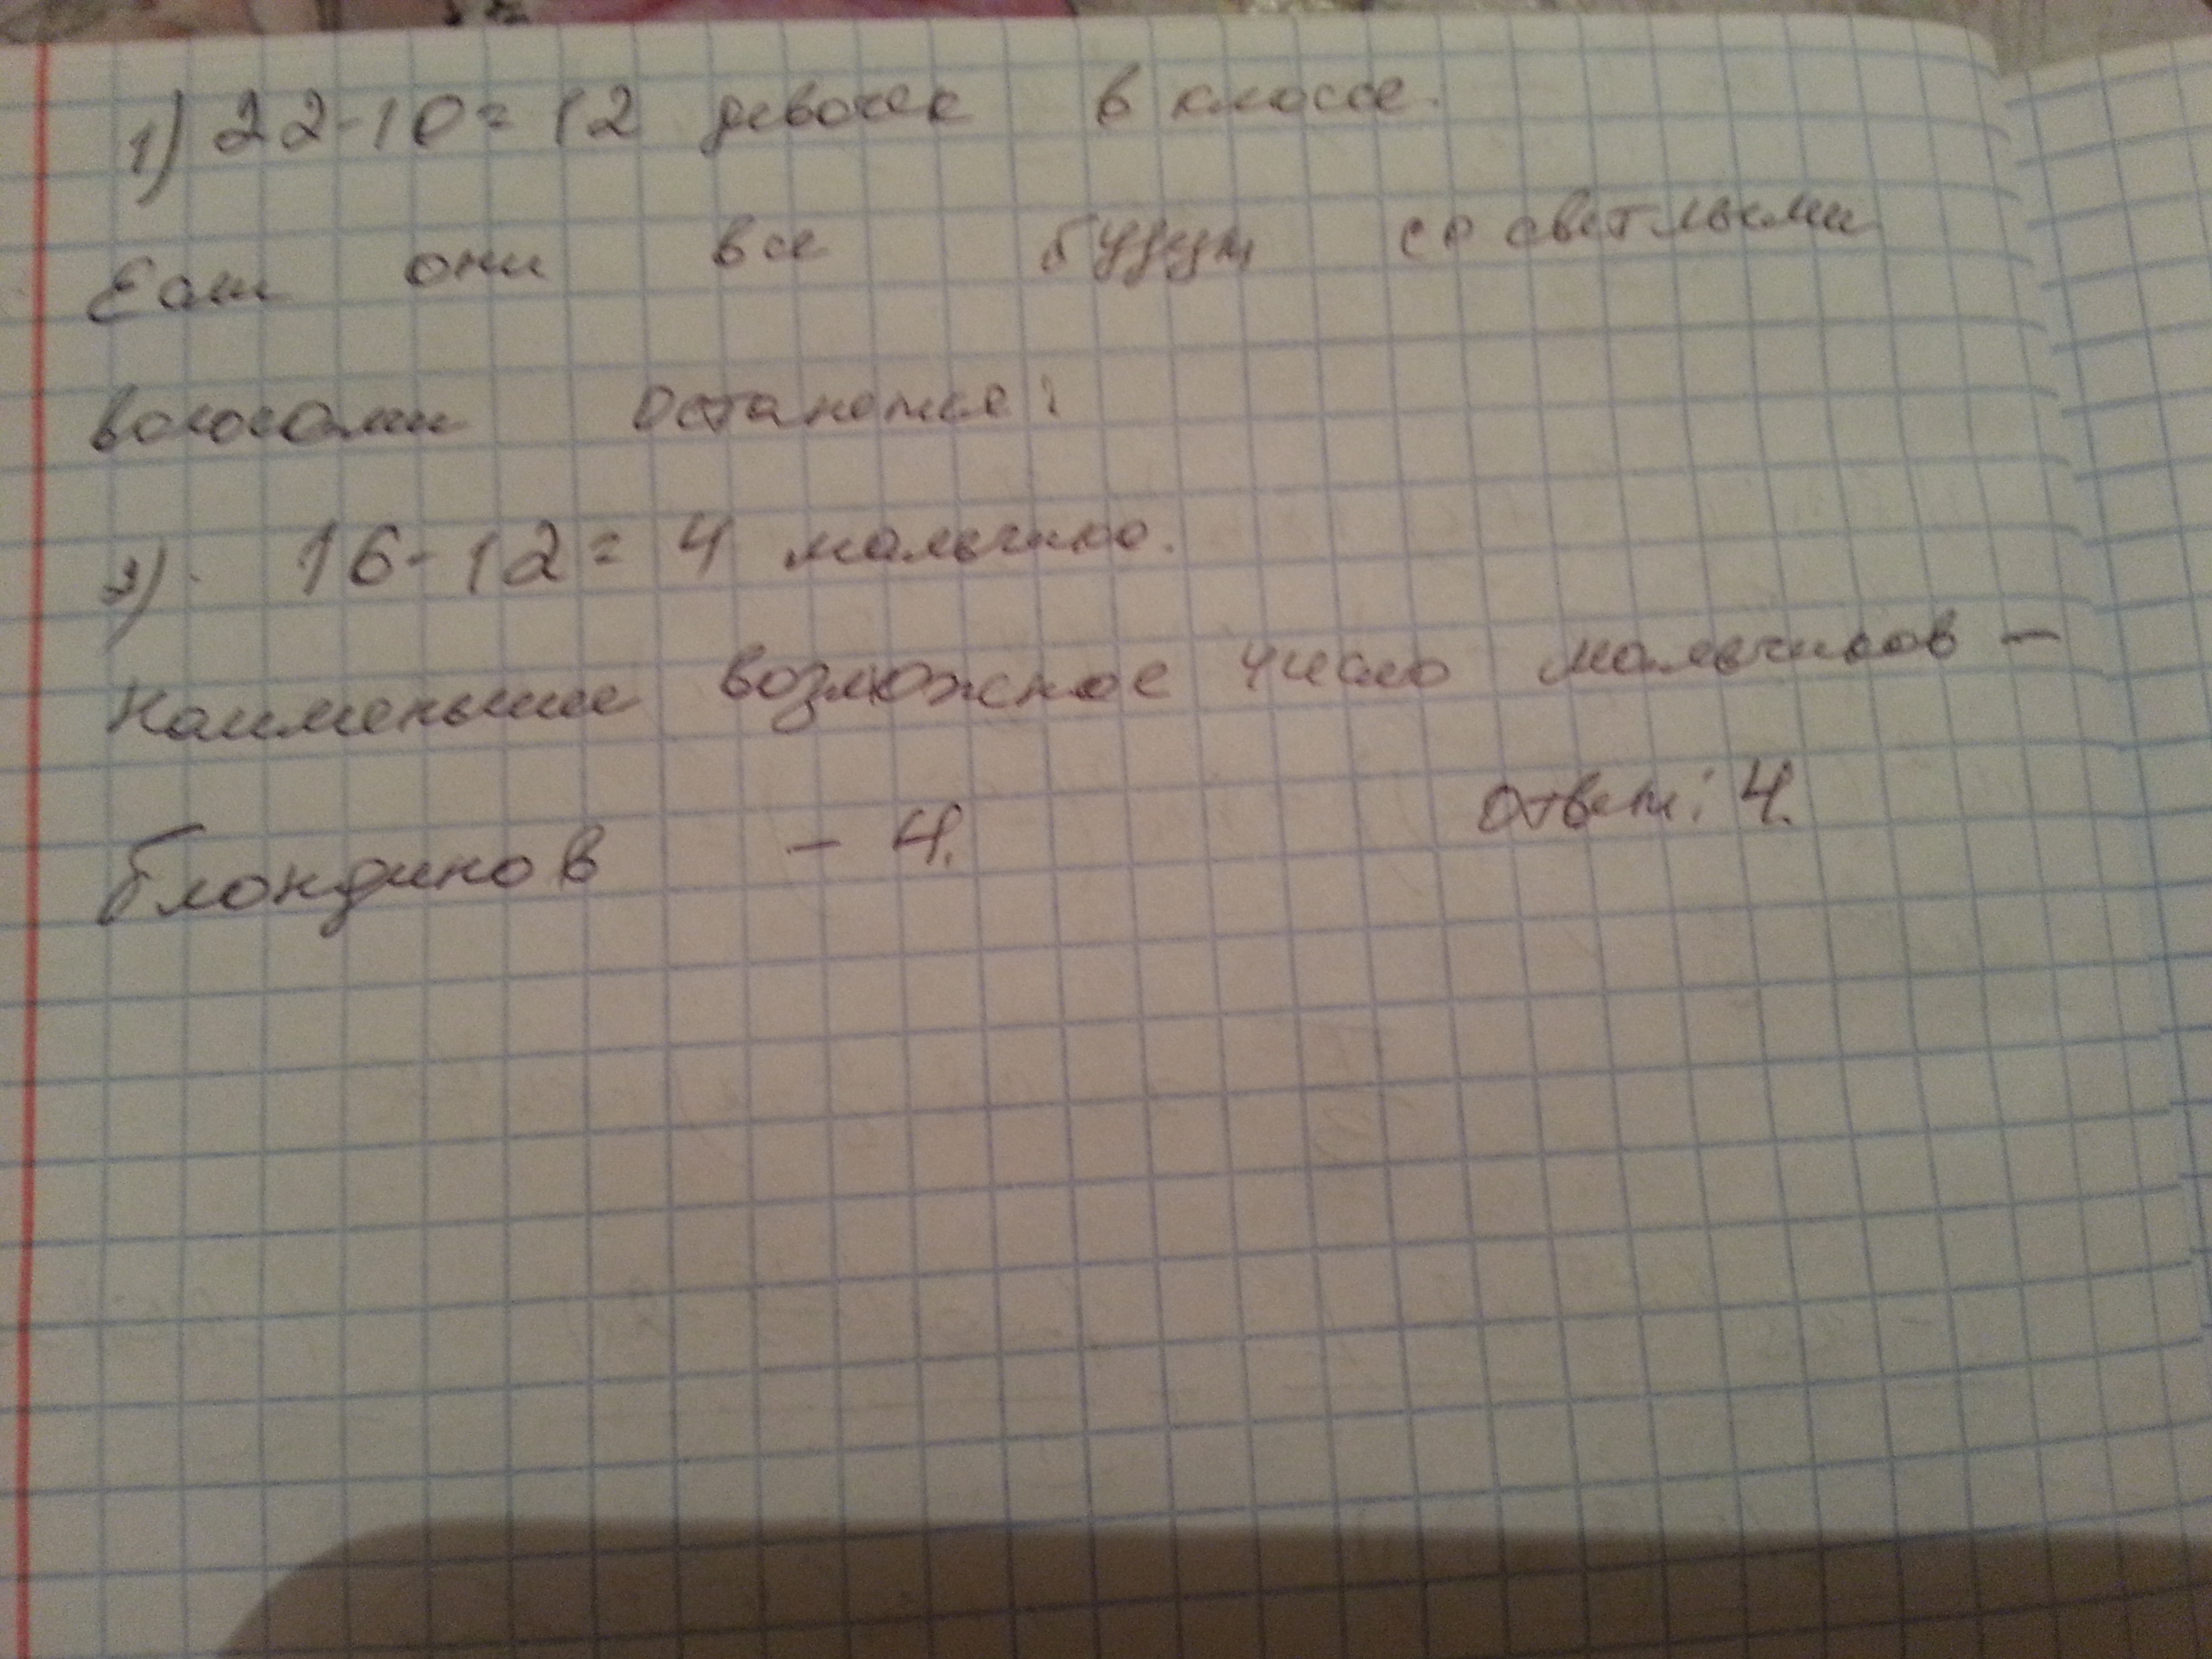 1) 22-10=12 девочек в классе.
Если они все будут со светлыми
волосами останется:
2) 16-12=4 мальчика.
Наименьшее возможное число мальчиков –
блондинов – 4. Ответ: 4.